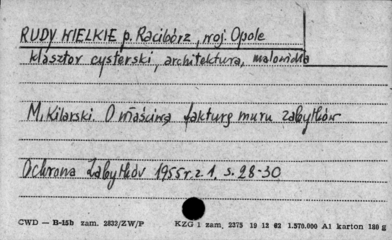 RUDY WIELKIE p. Racibórz, woj. Opole
klasztor cysterski, architektura, malowidła
M. Kilarski. O właściwą fakturę muru zabytków
Ochrona Zabytków 1955 r. z. 1. s. 28-30
CWD — B-15b zam. 2832/ZW/P KZG 1 zam, 2375 19 12 62 1.570.000 A1 karton 180 g